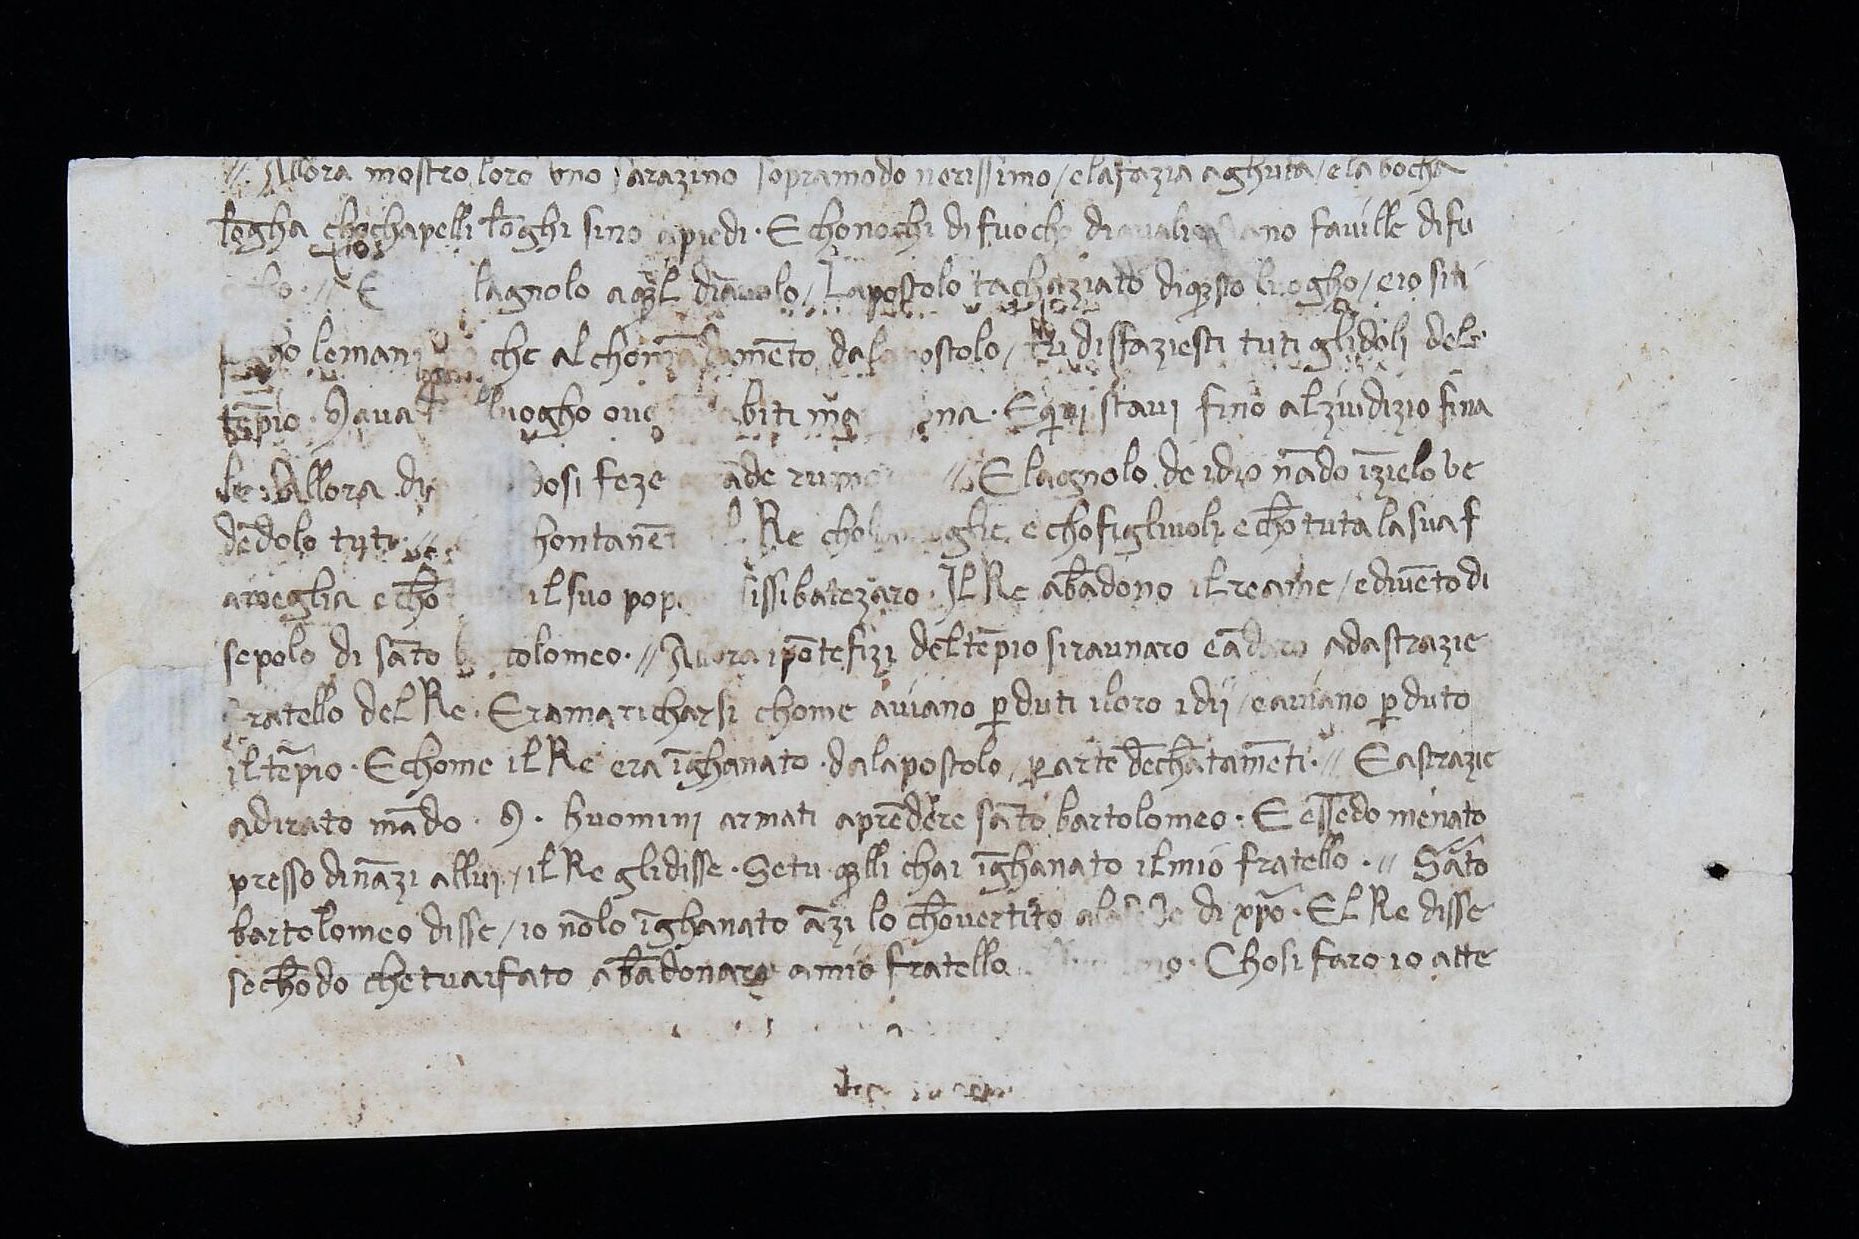 // Allora mostro loro uno sarazino sopramodo nerissimo / e lafazia aghuta / e la bocha
lōgha chochapelli lōghi sino apiedi · E chonochi di fuocho faville difu
cho · // E lagnolo aqƺl diāvolo / Lapostolo tachaziato diqƺsto luogho / e io siti
lemani che al chomādamēto dalapostolo / tu disfaziesti tuti glidoli dele
tēpio · luogho ove abiti na · E quivi stavi fino alziudizio fina
le · Allora dosi feze āde rumore // E lagnolo de idio nādo īzielo ve
dēdolo tuti hontanē Re cholamoglie e chofigliuoli e chō tuta lasua f
ameglia e chō il suo pop issibatezaro · Il Re abādono il reame / e divēto di
sepolo di sāto bartolomeo · // Allora ipōtefizi del tēpio siraunaro e ādaro adastrazie
fratello del Re · E ramaricharsi chome aviano ꝑduti iloro idij / e aviano ꝑduto
il tēpio · E chome il Re era īghanato · dalapostolo / ꝑ arte dēchātamēti · // E astrazie
adirato mādo · 9 · huomini armati aprēdere sāto bartolomeo · E essēdo menato
presso dināzi allui / il Re glidisse · Setu qƺlli chai īghanato ilmio fratello · // Sāto
bartolomeo disse / io nōlo īghanato āzi lo chōvertito alafede di xp̄o · El Re disse
sechōdo chetuaifato abādonare amio fratello · Chosi faro io atte